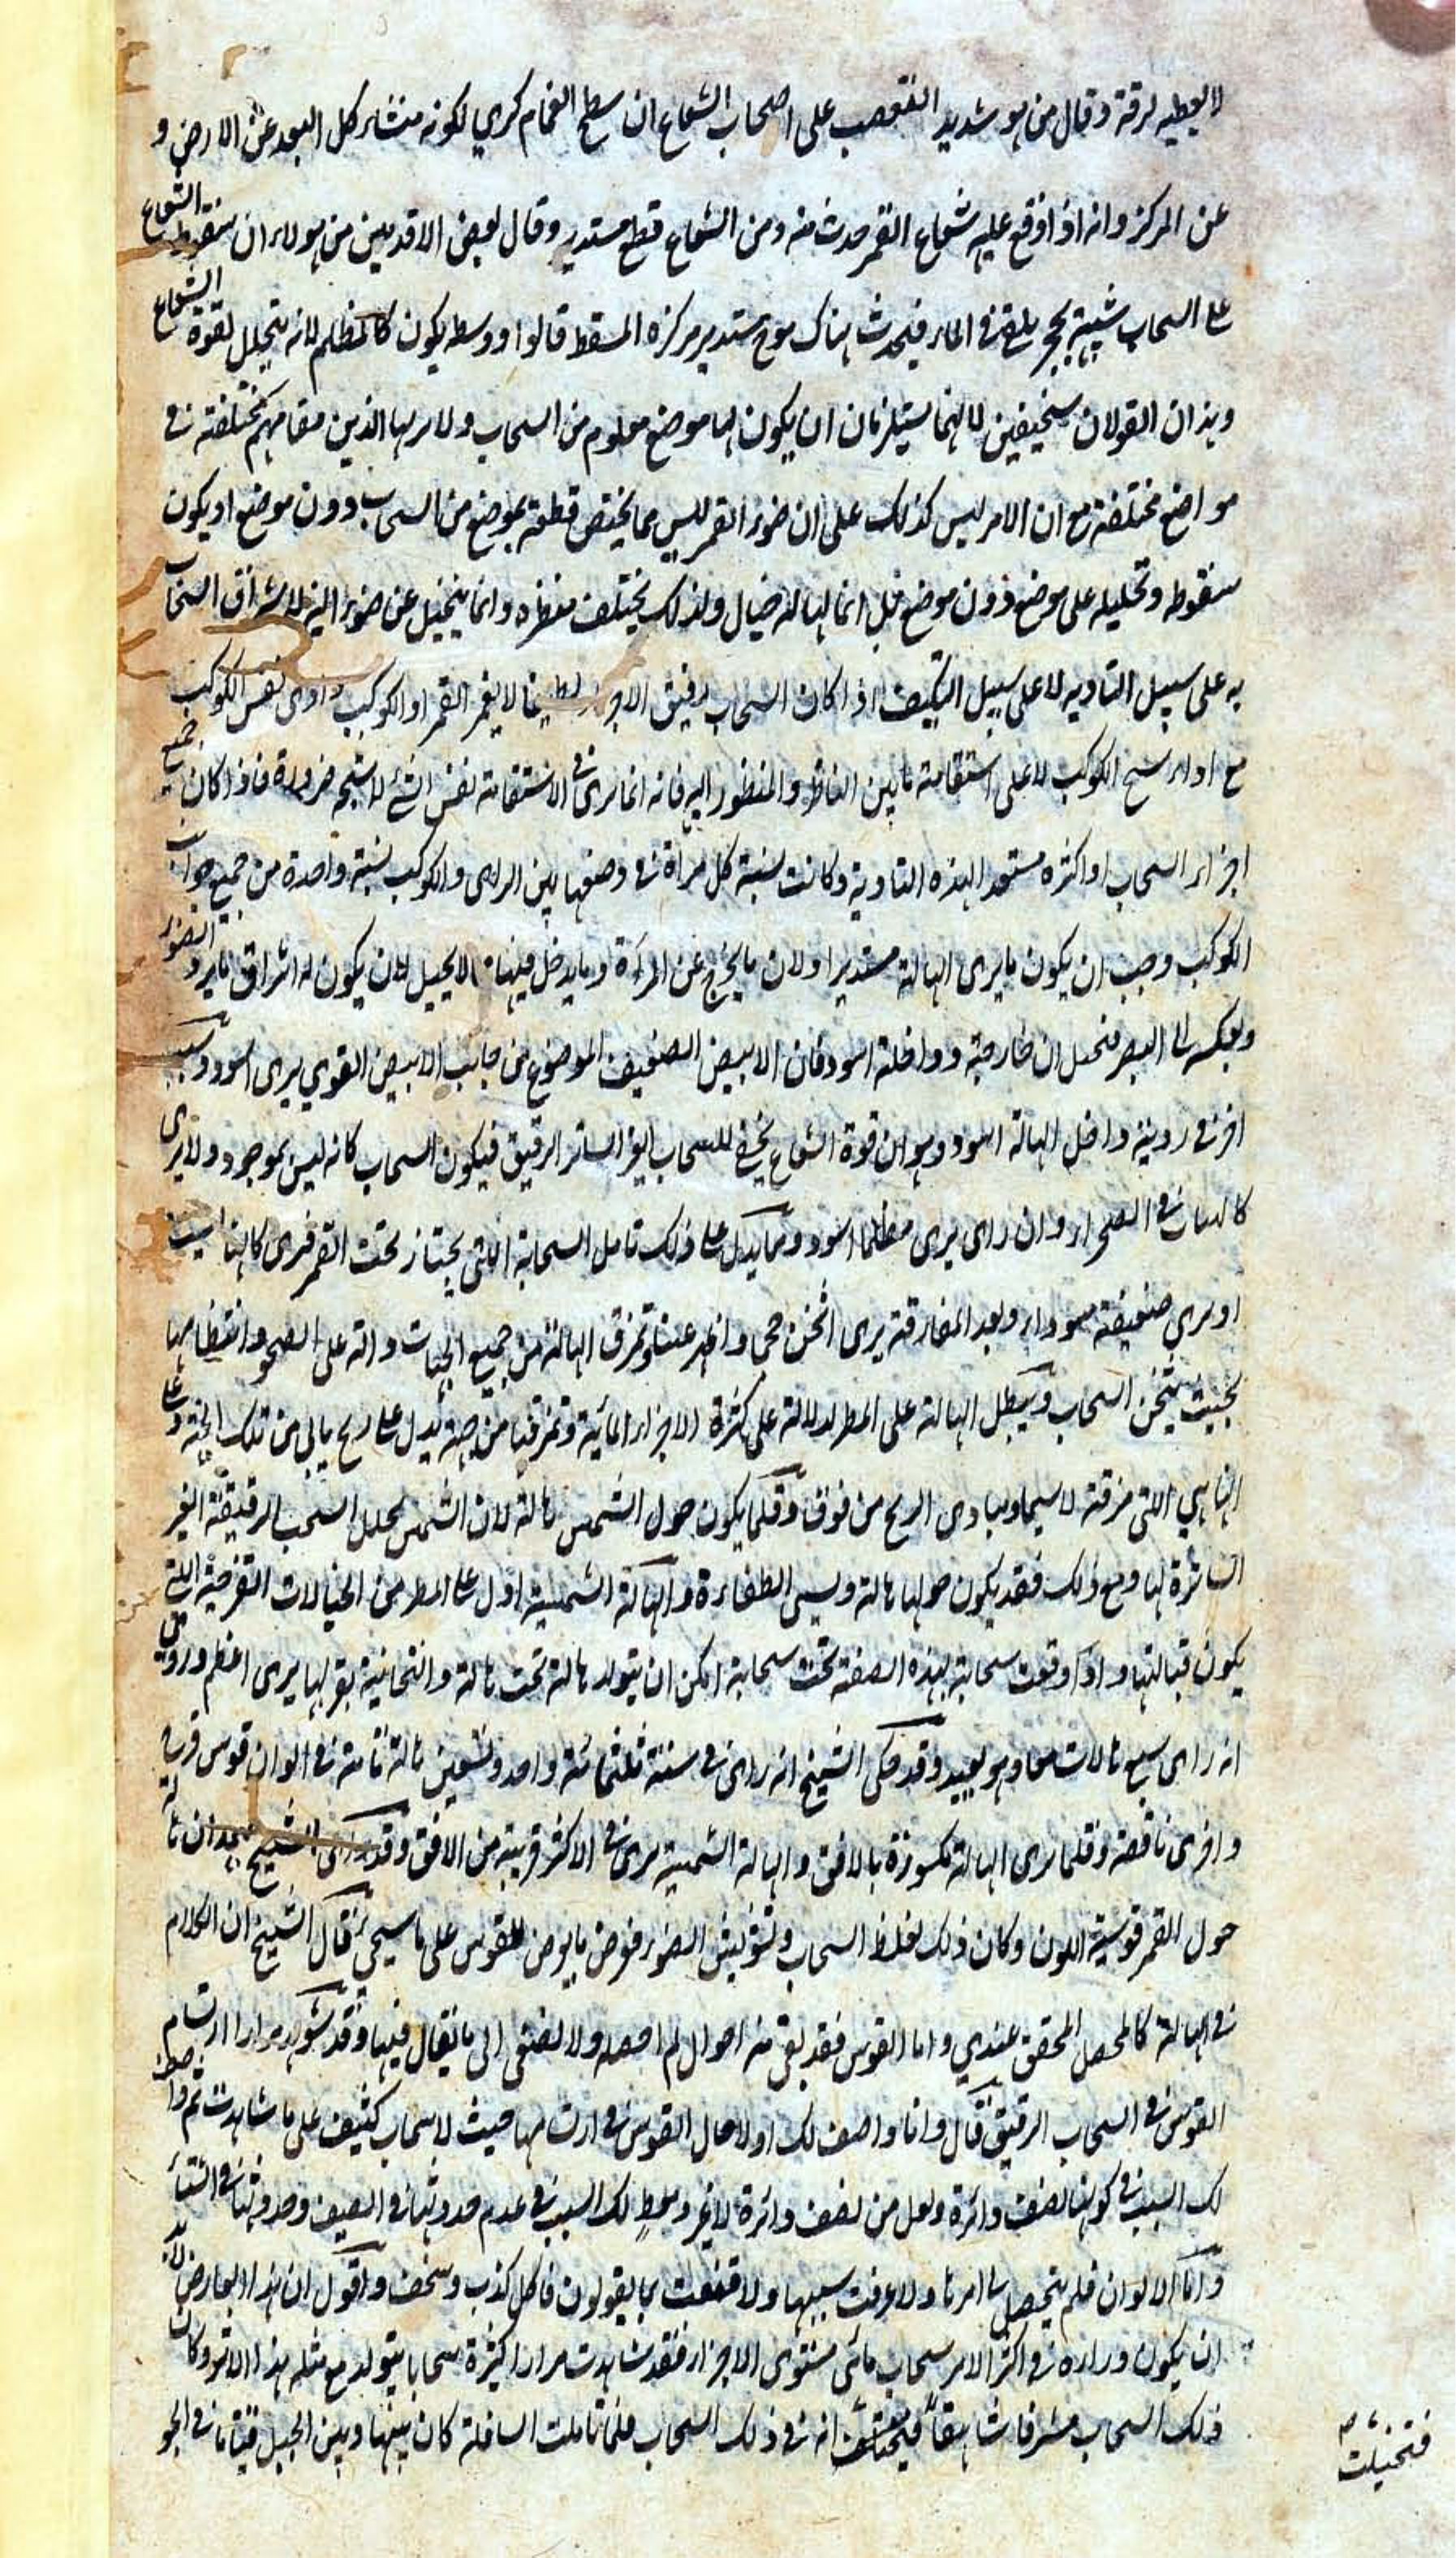 لا يعطيه لرقة وقال من هو شديد التعصب على اصحاب الشعاع ان سطح الغمام كري لكونه متشابه كل البعد عن الارض و
عن المركز وانه اذا وقع عليه شعاع القمر حدث منه ومن الشعاع قطع مستدير وقال بعض الاقدمين من هولاء ان سقوط الشعاع
على السحاب شبيه بحجر يلقى في الماء فيحدث هناك موج مستدير مركزه المسقط قالوا ووسطه يكون كالمظلم لانه يتحلل لقوة الشعاع
وهذان القولان سخيفين لانهما يستلزمان ان يكون لها موضع معلوم من السحاب ولا يراها الذين مقامهم مختلفة في
مواضع مختلفة مع ان الامر ليس كذلك على ان ضوء القمر ليس مما يختص قطعة بموضع من السحاب دون موضع او يكون
سقوطه وتحليله على موضع دون موضع بل انما الهالة خيال ولذلك يختلف منظره وانما يتخيل عن ضوء النير لاشراق السحاب
به على سبيل التادية لا على سبيل التكيف اذا كان السحاب رقيق الاجزاء لطيفا لا يغمر القمر او الكوكب وادى نفس الكوكب
مع اداء شبح الكوكب لا على استقامة ما بين الناظر والمنظور اليه فانه انما يرى في الاستقامة نفس الشئ لا شبحه ضرورة فاذا كان جميع
اجزاء السحاب او اكثره مستعدا لهذه التادية وكانت نسبة كل مرآة في وضعها بين الرائي والكوكب نسبة واحدة من جميع جوانب
الكوكب وجب ان يكون ما يرى الهالة مستديرا ولان ما يخرج عن المرآة وما يدخل فيها لا يخيل لان يكون له اشراق ما يرد الضوء
وبعكسه الى البصر فتخيل ان خارجة وداخلة اسود فان الابيض الضعيف الموضوع من جانب الابيض القوي يرى اسود وسبب
اخر في روية داخل الهالة اسود وهو ان قوة الشعاع يخفي السحاب الغير الساتر الرقيق فيكون السحاب كانه ليس بموجود ولا يرى
كالهباء في الصحراء وان رائ يرى مظلما اسود ومما يدل على ذلك تامل السحابة التي يجتاز تحت القمر فترى كانها ليست
او يرى ضعيفة سوداء وبعد المفارقة يرى اثخن حجما واظهر عنه وتمزق الهالة من جميع الجهات دالة على الصحو وانتظامها
بحيث يثخن السحاب ويبطل الهالة على المطر لدلالة على كثرة الاجزاء المائية وتمزقها من جهة يدل على ريح ياتي من تلك الجهة وعلى
انها هي التي مزقته لا سيما ومبادى الريح من فوق وقلما يكون حول الشمس هالة لان الشمس يحلل السحب الرقيقة الغير
الساترة لها ومع ذلك فقد يكون حولها هالة ويسمى الطفاوة والهالة الشمسية ادل على المطر من الخيالات القزحية التي
يكون قبالتها واذا وقعت سحابة بهذه الصفة تحت سحابة امكن ان يتولد هالة تحت هالة والتحتانية بقربها يرى اعظم وروى
انه راى سبع هالات معا وهو بعيد وقد حكى الشيخ انه راى في سنة ثلثمائة واحد وتسعين هالة تامة في الوان قوس قزح
واخرى ناقصة وقلما يرى الهالة مكسورة بالافق والهالة الشمسية يرى في الاكثر قريبة من الافق وقد راى الشيخ بهمدان هالة
حول القمر قوسية اللون وكان ذلك لغلظ السحاب وتشويش الضوء فعرض ما يعرض للقوس على ما سيجي قال الشيخ ان الكلام
في الهالة كالمحصل المحقق عندي واما القوس فقد بقى منه احوال لم احصله ولا اصغى الى ما يقال فيها وقد شوهد مرارا ارتسام
القوس في السحاب الرقيق قال وانا واصف لك اولا حال القوس في ارتسامها حيث لا سحاب كثيف على ما شاهدت ثم واصف
لك السبب في كونها نصف دائرة واقل من نصف دائرة لا غير ومعط لك السبب في عدم حدوثها في الصيف وحدوثها في الشتاء
واما الالوان فلم يتحصل لي امرها ولا عرفت سببها ولا قنعت بما يقولون فاكل كذب وسخف واقول ان هذا العارض لا بد
ان يكون وراءه في اكثر الامر سحاب مائي مستوى الاجزاء فقد شاهدت مرارا كثيرة سحابا يتولد مع مثله هذا الاثر وكان
ذلك السحاب مشرفا شاهقا فيتخيلت انه في ذلك السحاب فلما تاملت السافلة كان بينها وبين الجبل قيتانا في الجو
فتخيلت